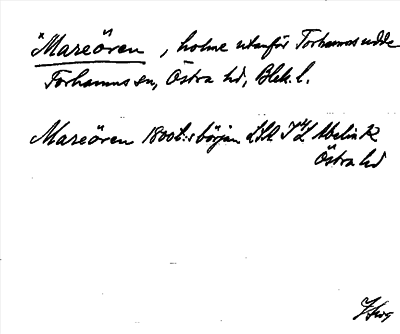 "Mareören, holme utanför Torhamns udde
Torhamns sn, Östra hd, Blek. l.
Mareören 1800t:s början LSA
Östra hd